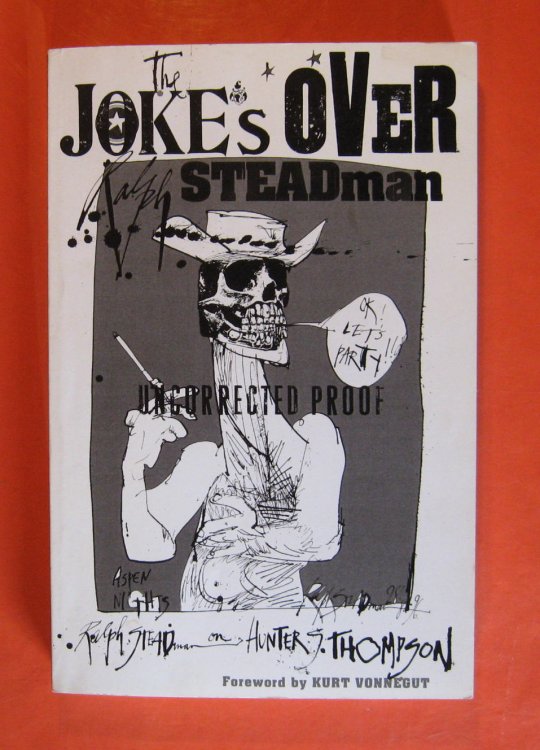 The
JOKE's OVER
Ralph STEADman
OK!
LET'S
PARTY!!
UNCORRECTED PROOF
ASPEN
NIGHTS
Ralph STEADman
Ralph STEADman on HUNTER S. THOMPSON
Foreword by KURT VONNEGUT